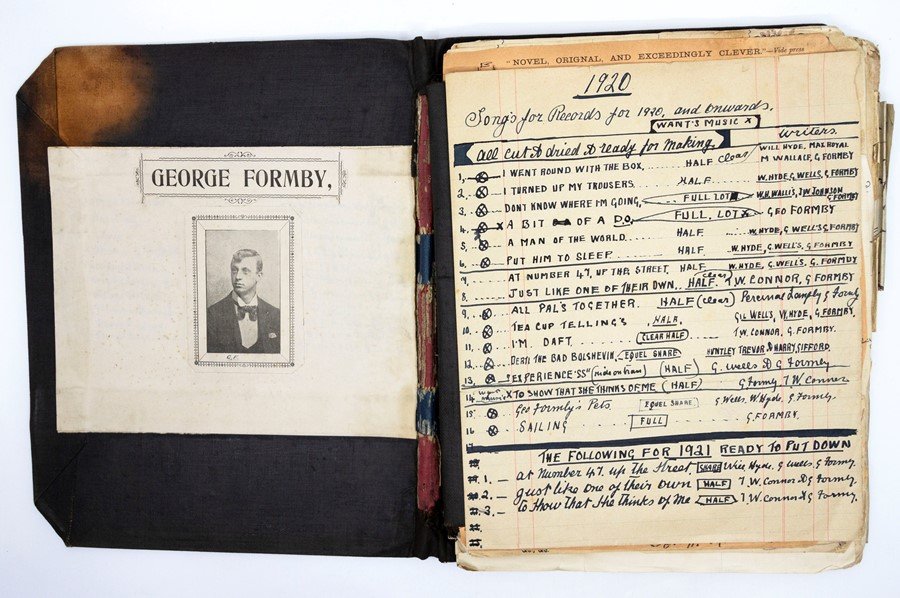 GEORGE FORMBY,
G.F.
"NOVEL, ORIGNAL, AND EXCEEDINGLY CLEVER."—Vide press
1920
Song's for Records for 1920, and onwards.
WANT'S MUSIC X
writers.
All cut & dried & ready for making.
1. I WENT ROUND WITH THE BOX.... HALF clear WILL HYDE, MAX ROYAL
M WALLACE, G. FORMBY
2. I TURNED UP MY TROUSERS. HALF. W. HYDE, G. WELLS, G. FORMBY
3. DONT KNOW WHERE IM GOING, FULL LOT W.H. WALLIS, J.W. JOHNSON
G FORMBY
4. X A BIT OF A D.O. FULL, LOT X GEO FORMBY
5. A MAN OF THE WORLD.... HALF W. HYDE, G. WELL'S G. FORMBY
6. PUT HIM TO SLEEP. HALF W. HYDE, G. WELL'S, G. FORMBY
7. AT NUMBER 47, UP THE, STREET, HALF W. HYDE, G. WELL'S, G. FORMBY
8. JUST LIKE ONE OF THEIR OWN, HALF. (clear) T.W. CONNOR, G FORMBY
9. ALL PAL'S TOGETHER. HALF (clear) Percival Langley G Formby
10. TEA CUP TELLING'S HALF. GIL WELLS, W. HYDE, G. FORMBY.
11. I'M. DAFT CLEAR HALF T.W. CONNOR, G. FORMBY.
12. BERTI THE BAD BOLSHEVIN. EQUEL SHARE HUNTLEY TREVOR & HARRY GIFFORD.
13. "EXPERIENCE'SS" (HALF) G. wells & G Formby
14. X TO SHOW THAT SHE THINKS OF ME (HALF) G Formby, T.W. Connor
15. Geo Formby's Pets EQUEL SHARE G. Wells, W. Hyde, G. Formby.
16 SAILING FULL G. FORMBY.
17
THE FOLLOWING FOR 1921 READY TO PUT DOWN
1. - at Number 47. up the Street SHARE Will Hyde. G wells. G Formby
2. - just like one of their Own HALF T.W. Connor & G Formby.
3. - to Show that She thinks of Me HALF T.W. Connor & G Formby.